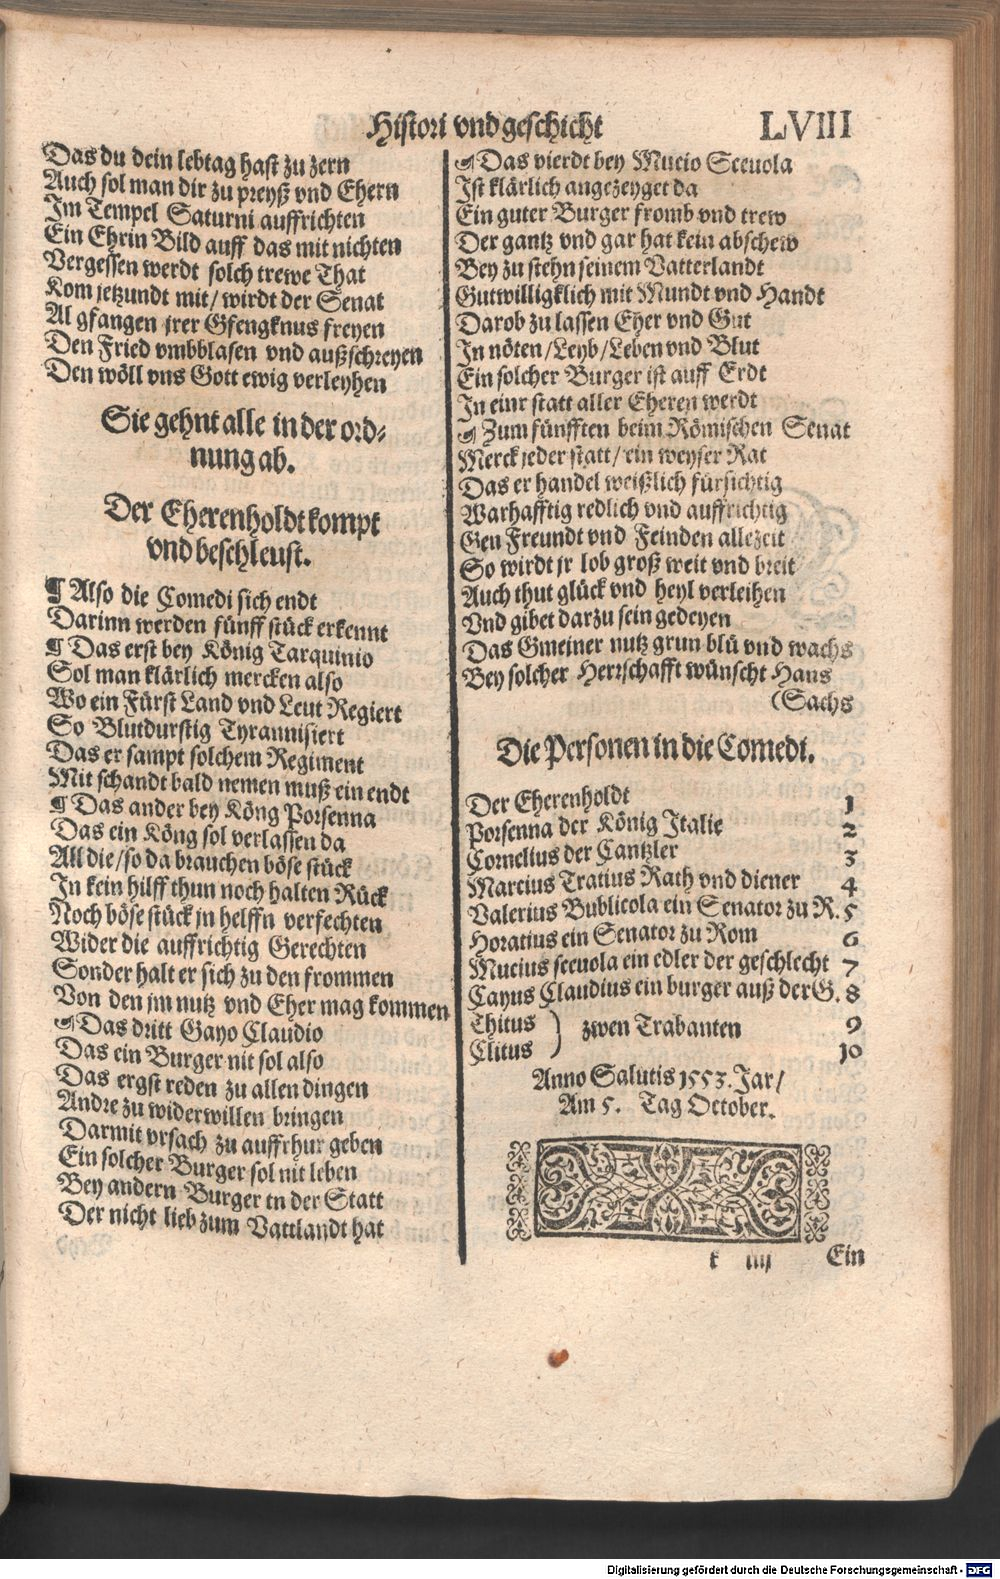 Histori vnd geschicht
LVIII
Das du dein lebtag hast zu zern
Auch sol man dir zu preyß vnd Ehern
Im Tempel Saturni auffrichten
Ein Ehrin Bild auff das mit nichten
Vergessen werdt solch trewe That
Kom jetzundt mit/ wirdt der Senat
Al gfangen jrer Gfengknus freyen
Den Fried vmbblasen vnd außschreyen
Den wöll vns Gott ewig verleyhen
Sie gehnt alle in der ord-
nung ab.
Der Eherenholdt kompt
vnd beschleust.
¶ Also die Comedi sich endt
Darinn werden fünff stück erkennt
¶ Das erst bey König Tarquinio
Sol man klärlich mercken also
Wo ein Fürst Land vnd Leut Regiert
So Blutdurstig Tyrannisiert
Das er sampt solchem Regiment
Mit schandt bald nemen muß ein endt
¶ Das ander bey Köng Porsenna
Das ein Köng sol verlassen da
All die/ so da brauchen böse stück
In kein hilff thun noch halten Rück
Noch böse stück jn helffn verfechten
Wider die auffrichtig Gerechten
Sonder halt er sich zu den frommen
Von den jm nutz vnd Eher mag kommen
¶ Das dritt Gayo Claudio
Das ein Burger nit sol also
Das ergst reden zu allen dingen
Andre zu widerwillen bringen
Darmit vrsach zu auffrhur geben
Ein solcher Burger sol nit leben
Bey andern Burger in der Statt
Der nicht lieb zum Vattlandt hat
¶ Das vierdt bey Mucio Sceuola
Ist klärlich angezeyget da
Ein guter Burger fromb vnd trew
Der gantz vnd gar hat kein abschew
Bey zu stehn seinem Vatterlandt
Gutwilligklich mit Mundt vnd Handt
Darob zu lassen Eher vnd Gut
In nöten/ Leyb/ Leben vnd Blut
Ein solcher Burger ist auff Erdt
In einr statt aller Eheren werdt
¶ Zum fünfften beim Römischen Senat
Merck jeder statt/ ein weyser Rat
Das er handel weißlich fürsichtig
Warhafftig redlich vnd auffrichtig
Gen Freundt vnd Feinden allezeit
So wirdt jr lob groß weit vnd breit
Auch thut glück vnd heyl verleihen
Vnd gibet darzu sein gedeyen
Das Gmeiner nutz grun blü vnd wachs
Bey solcher Herrschafft wünscht Hans
(Sachs
Die Personen in die Comedi.
Der Eherenholdt 1
Porsenna der König Italie 2
Cornelius der Cantzler 3
Marcius Tratius Rath vnd diener 4
Valerius Bublicola ein Senator zu R. 5
Horatius ein Senator zu Rom 6
Mucius sceuola ein edler der geschlecht 7
Cayus Claudius ein burger auß der G. 8
Thitus ) zwen Trabanten 9
Clitus 10
Anno Salutis 1553. Jar/
Am 5. Tag October.
k iiij Ein
Digitalisierung gefördert durch die Deutsche Forschungsgemeinschaft - DFG